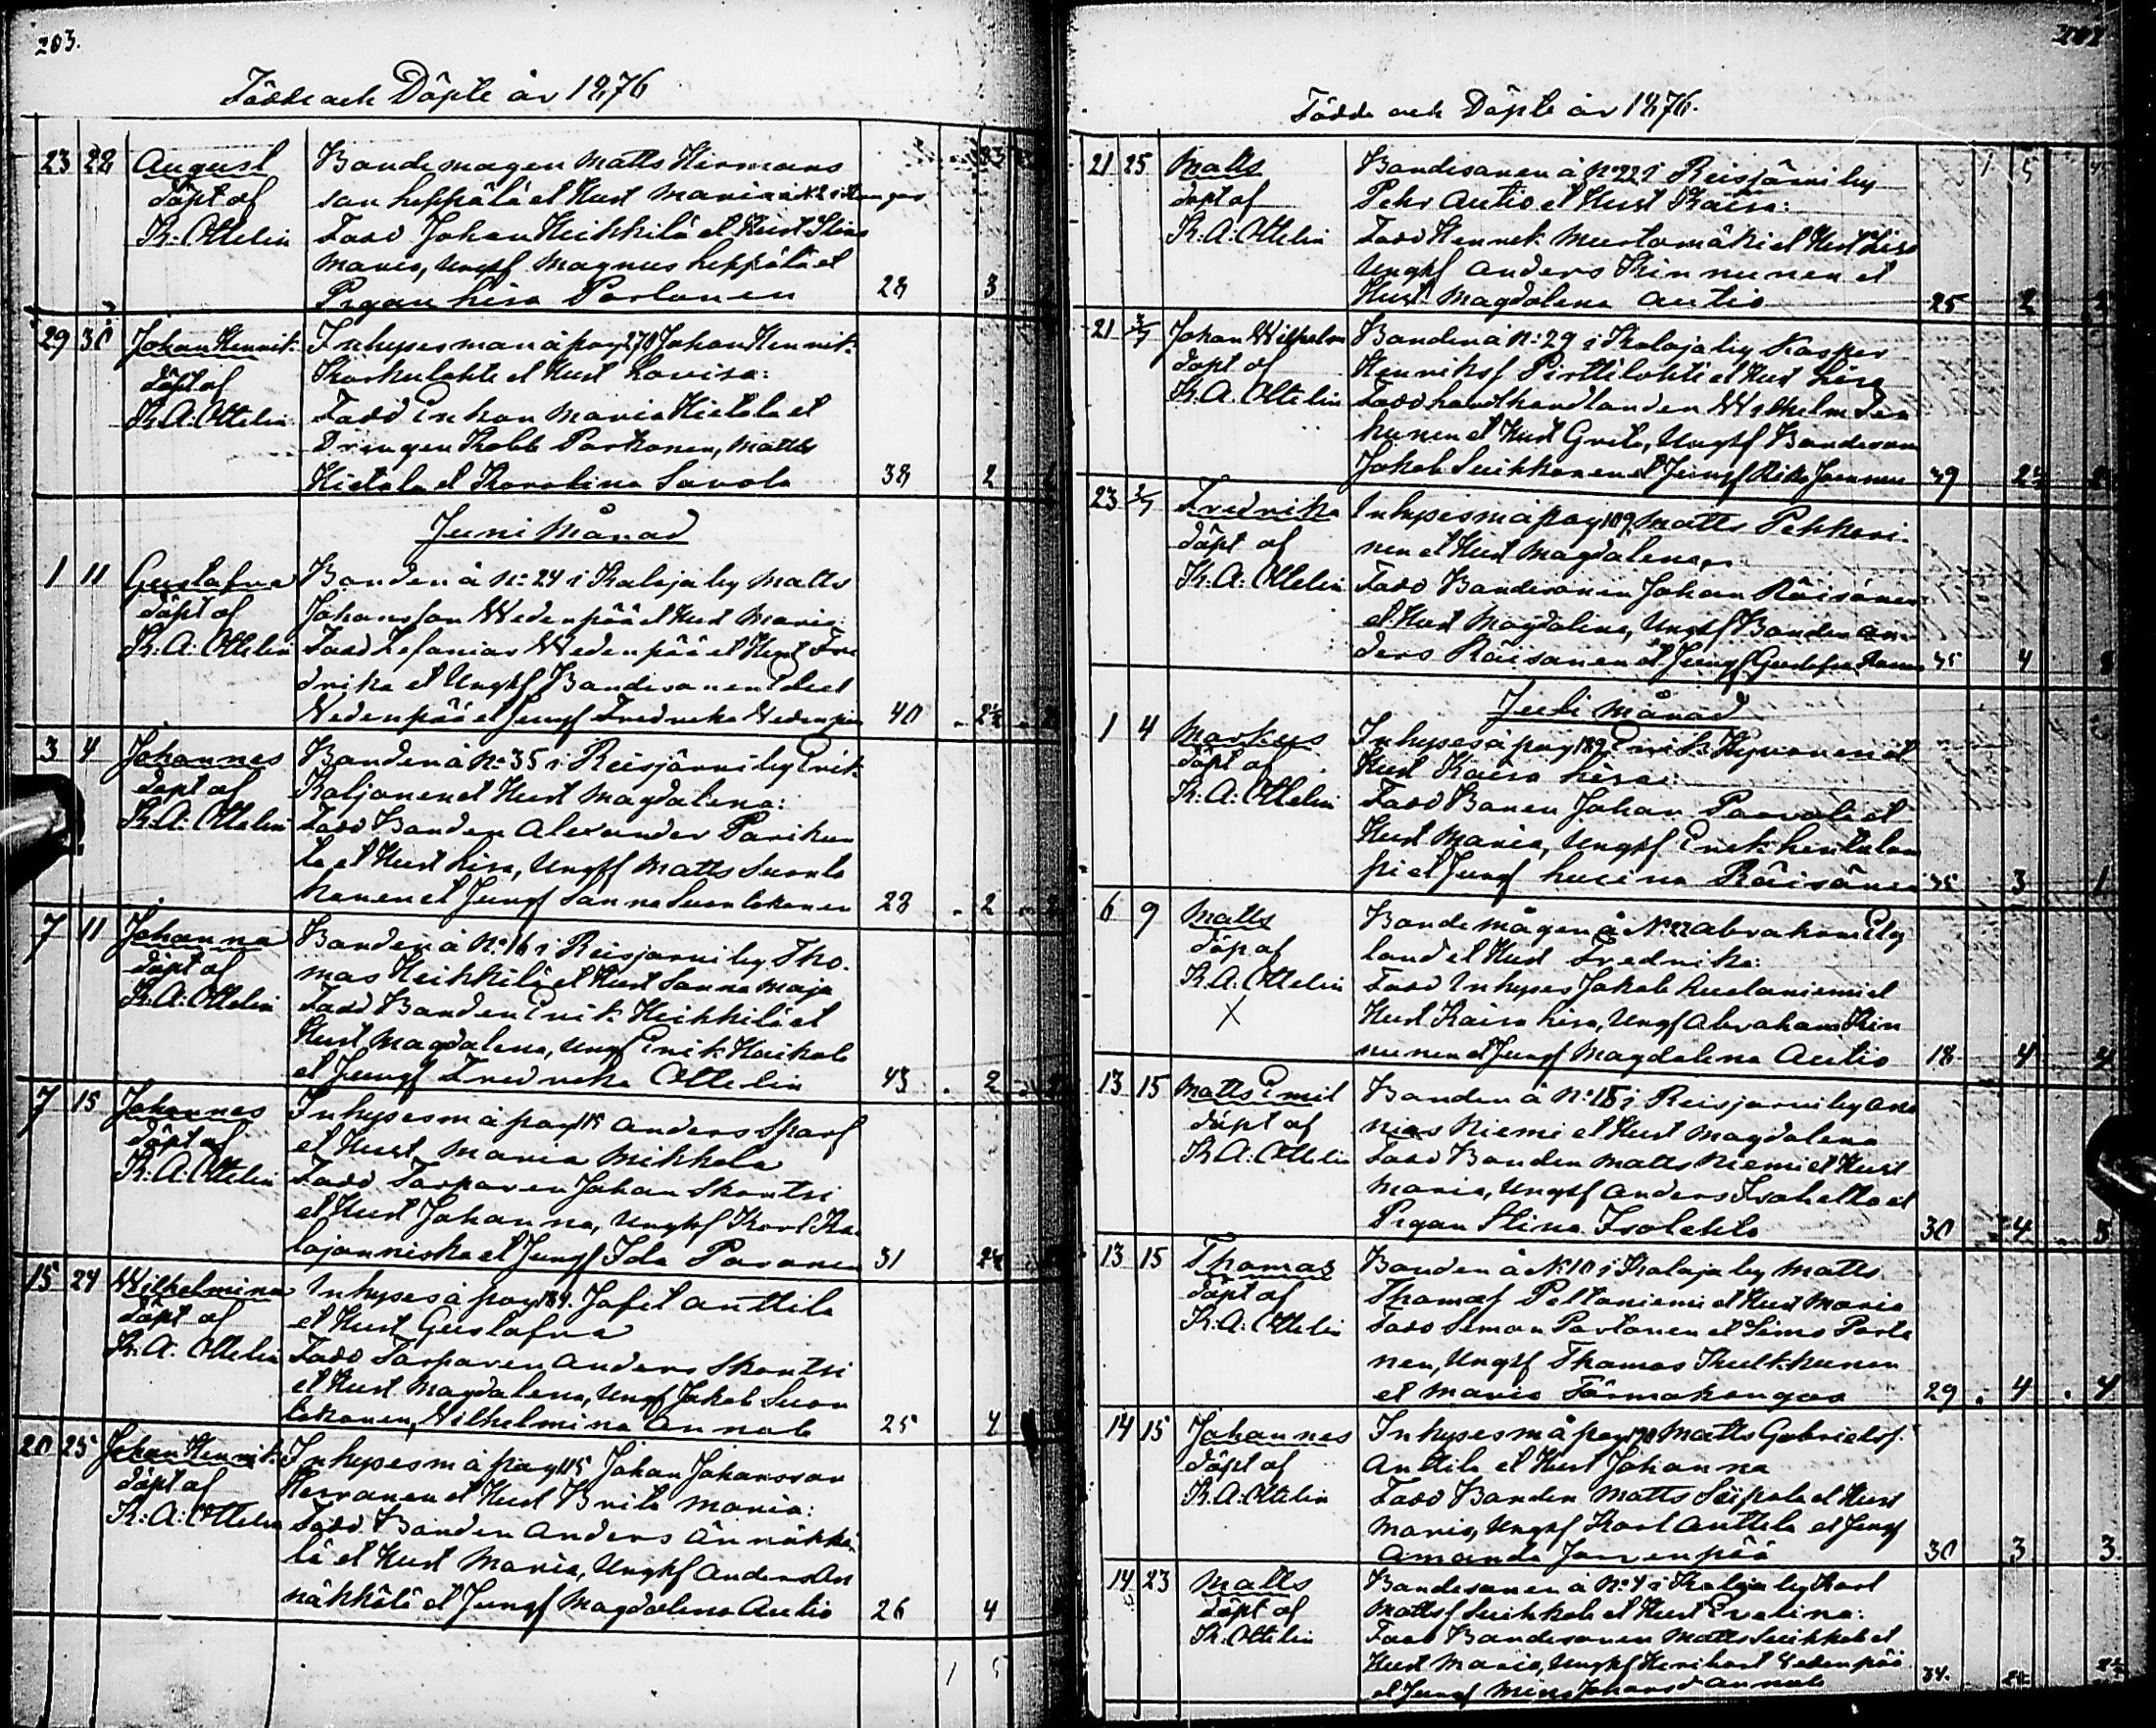 203.
Födde och Döpte år 1876
23 28 August
döpt af
K: Ottelin
Bondemågen Matts Hermans
son Leppälä et Hust Maria
Fadd Johan Heikkilä et Hust Stina
Maria, Ungkf Magnus Leppälä et
Pigan Lisa Partanen 28 3
29 30 Johan Henrik
döpt af
K. A. Ottelin
Inhyses man å pag 270 Johan Henrik
Korkulehte et Hust Lovisa:
Fadd Enkan Maria Hietala et
Drängen Kalle Parkonen, Matts
Hietala et Karolina Savola 38 2
Juni Månad
1 11 Gustafva
döpt af
K: A: Ottelin
Bonden å No: 24 i Kalaja by Matts
Johansson Wedenpää et Hust Maria
Fadd Zefanias Wedenpää et Hust Fre
drika et Ungkf Bondesonen
Wedenpää et Jungf Fredrika Wedenpää 40 2½
3 4 Johannes
döpt af
K: A: Ottelin
Bonden å No: 35 i Reisjärvi by Erik
Kaljanen et Hust Magdalena:
Fadd Bonden Alexander Parikka
la et Hust Lisa, Ungkf Matts Suonla
kanen et Jungf Sanna Suonlakanen 28 2
7 11 Johanna
döpt af
K: A: Ottelin
Bonden å No: 16 i Reisjärvi by Tho
mas Heikkilä et Hust Sanna Maja
Fadd Bonden Erik Heikkilä et
Hust Magdalena, Ungf Erik Haikola
et Jungf Fredrika Ottelin 43 2
7 15 Johannes
döpt af
K: A: Ottelin
Inhyses m å pag 115 Anders Sparf
et Hust Maria Mikkola
Fadd Torparen Johan Skantsi
et Hust Johanna, Ungkf Karl Ka
lajanniska et Jungf Ida Paranen 31 2½
15 24 Wilhelmina
döpt af
K. A: Ottelin
Inhyses å pag 184. Jafet Anttila
et Hust Gustafva
Fadd Torparen Anders Skantsi
et Hust Magdalena, Ungf Jakob Suon
lakanen, Wilhelmina Annala 25 4
20 25 Johan Henrik
döpt af
K: A: Ottelin
Inhyses m å pag 115 Johan Johansson
Herranen et Hust Brita Maria:
Fadd. Bonden Anders Ännäkkä
lä et Hust Maria, Ungkf Anders Än
näkkälä et Jungf Magdalena Autio 26 4
1 5
Födde och Döpte år 1876.
21 25 Matts
döpt af
K. A: Ottelin
Bondsonen å No 22 i Reisjärvi by
Pehr Autio et Hust Kaisa:
Fadd Henrik Mustamäki et Hust Lisa
Ungkf Anders Kinnunen et
Hust Magdalena Autio 25 2
21 2/7 Johan Wilhelm
döpt af
K. A. Ottelin
Bonden å N: 29 i Kalaja by Kasper
Henriksf Pirttilahti et Hust Lisa
Fadd handlanden Wilhelm
hunen et Hust Greta, Ungkf Bondeson
Jakob Suikkanen et Jungf 39 2½
23 2/7 Fredrika
döpt af
K: A: Ottelin
Inhyses m å pag 109 Matts Pekkari
nen et Hust Magdalena:
Fadd Bondesonen Johan Räisänen
et Hust Magdalena, Ungkf Bonden An
ders Räisänen et Jungf Gustafva 35 4
Juli Månad
1 4 Markus
döpt af
K: A: Ottelin
Inhyses å pag 189 Erik Hyvönen et
Hust Kaisa Lisa:
Fadd Bonen Johan Paavola et
Hust Maria, Ungkf Erik Lintulam
pi et Jungf Lucina Räisänen 35 3 1
6 9 Matts
döp af
K. A. Ottelin
X
Bondemågen å No 22 Abraham
land et Hust Fredrika:
Fadd Inhyses Jakob Luolaniemi et
Hust Kaisa Lisa, Ungf Abraham Kin
nunen et Jungf Magdalena Autio 18 4 4
13 15 Matts Emil
döpt af
K. A: Ottelin
Bonden å No: 18 i Reisjärvi by Ana
nias Niemi et Hust Magdalena
Fadd Bonden Matts Niemi et Hust
Maria, Ungkf Anders Isoketto et
Pigan Stina Isolehto 30 4 5
13 15 Thomas
döpt af
K: A: Ottelin
Bonden å No: 10 i Kalaja by Matts
Thomasf Peltoniemi et Hust Maria
Fadd Simon Partanen et Simo Parta
nen, Ungkf Thomas Kulkkunen
et Maria Törmäkangas 29 4 4
14 15 Johannes
döpt af
K. A: Ottelin
Inhyses m å pag 170 Matts Gabrielsf
Anttila et Hust Johanna
Fadd Bonden Matts Seipola et Hust
Maria, Ungkf Karl Anttila et Jungf
Amanda Jarvenpää 30 3 3
14 23 Matts
döpt af
K: Ottelin
Bondesonen å No: 4 i Kalaja by Karl
Mattsf Suikkola et Hust Evelina:
Fadd Bondesonen Matts Suikkola et
Hust Maria, Ungkf Wedenpää
et Jungf Mina Annala 34. 2½ 2½